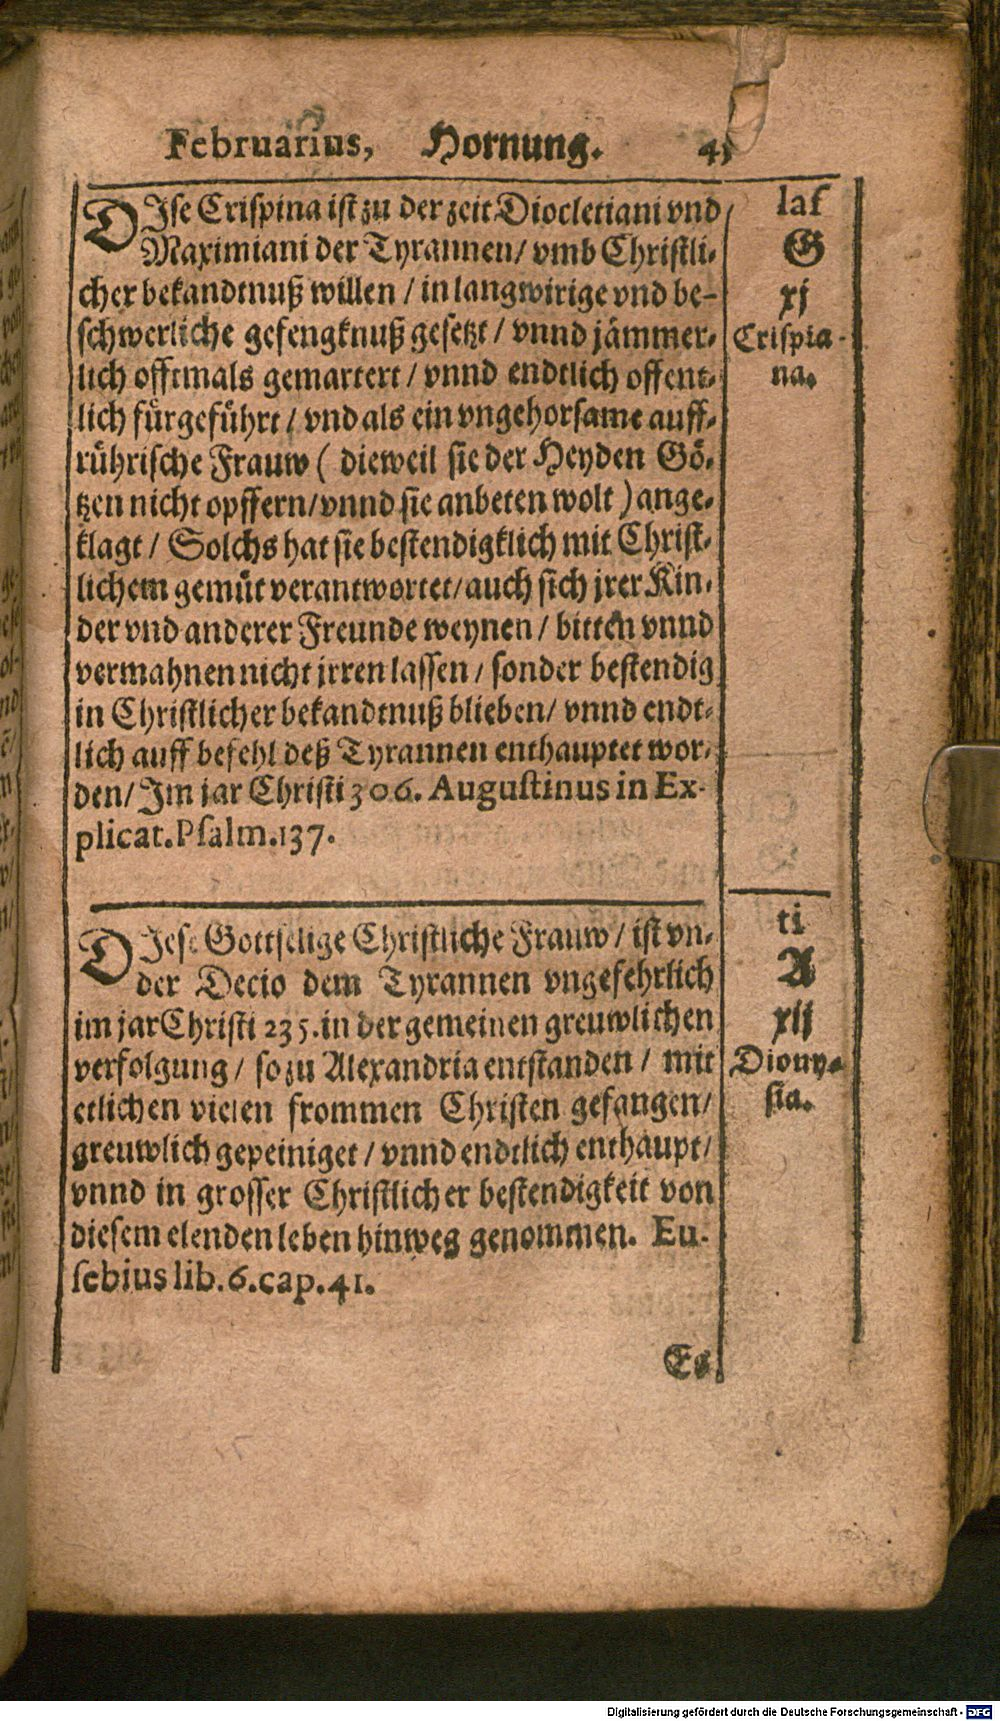 Februarius, Hornung. 45
DIse Crispina ist zu der zeit Diocletiani vnd
Maximiani der Tyrannen/ vmb Christli-
cher bekandtnuß willen / in langwirige vnd be-
schwerliche gefengknuß gesetzt / vnnd jämmer-
lich offtmals gemartert / vnnd endtlich offent-
lich fürgeführt / vnd als ein vngehorsame auff-
rührische Frauw ( dieweil sie der Heyden Gö-
tzen nicht opffern/vnnd sie anbeten wolt ) ange-
klagt / Solchs hat sie bestendigklich mit Christ-
lichem gemüt verantwortet/auch sich jrer Kin-
der vnd anderer Freunde weynen / bitten vnnd
vermahnen nicht jrren lassen / sonder bestendig
in Christlicher bekandtnuß blieben/ vnnd endt-
lich auff befehl deß Tyrannen enthauptet wor-
den/ Im jar Christi 306. Augustinus in Ex-
plicat.Psalm.137.
laf
G
xj
Crispia-
na.
DIese Gottselige Christliche Frauw / ist vn-
der Decio dem Tyrannen vngefehrlich
im jar Christi 235. in der gemeinen greuwlichen
verfolgung / so zu Alexandria entstanden / mit
etlichen vielen frommen Christen gefangen/
greuwlich gepeiniget / vnnd endtlich enthaupt/
vnnd in grosser Christlicher bestendigkeit von
diesem elenden leben hinweg genommen. Eu-
sebius lib.6.cap.41.
ti
A
xij
Diony-
sia.
Es
Digitalisierung gefördert durch die Deutsche Forschungsgemeinschaft - DFG